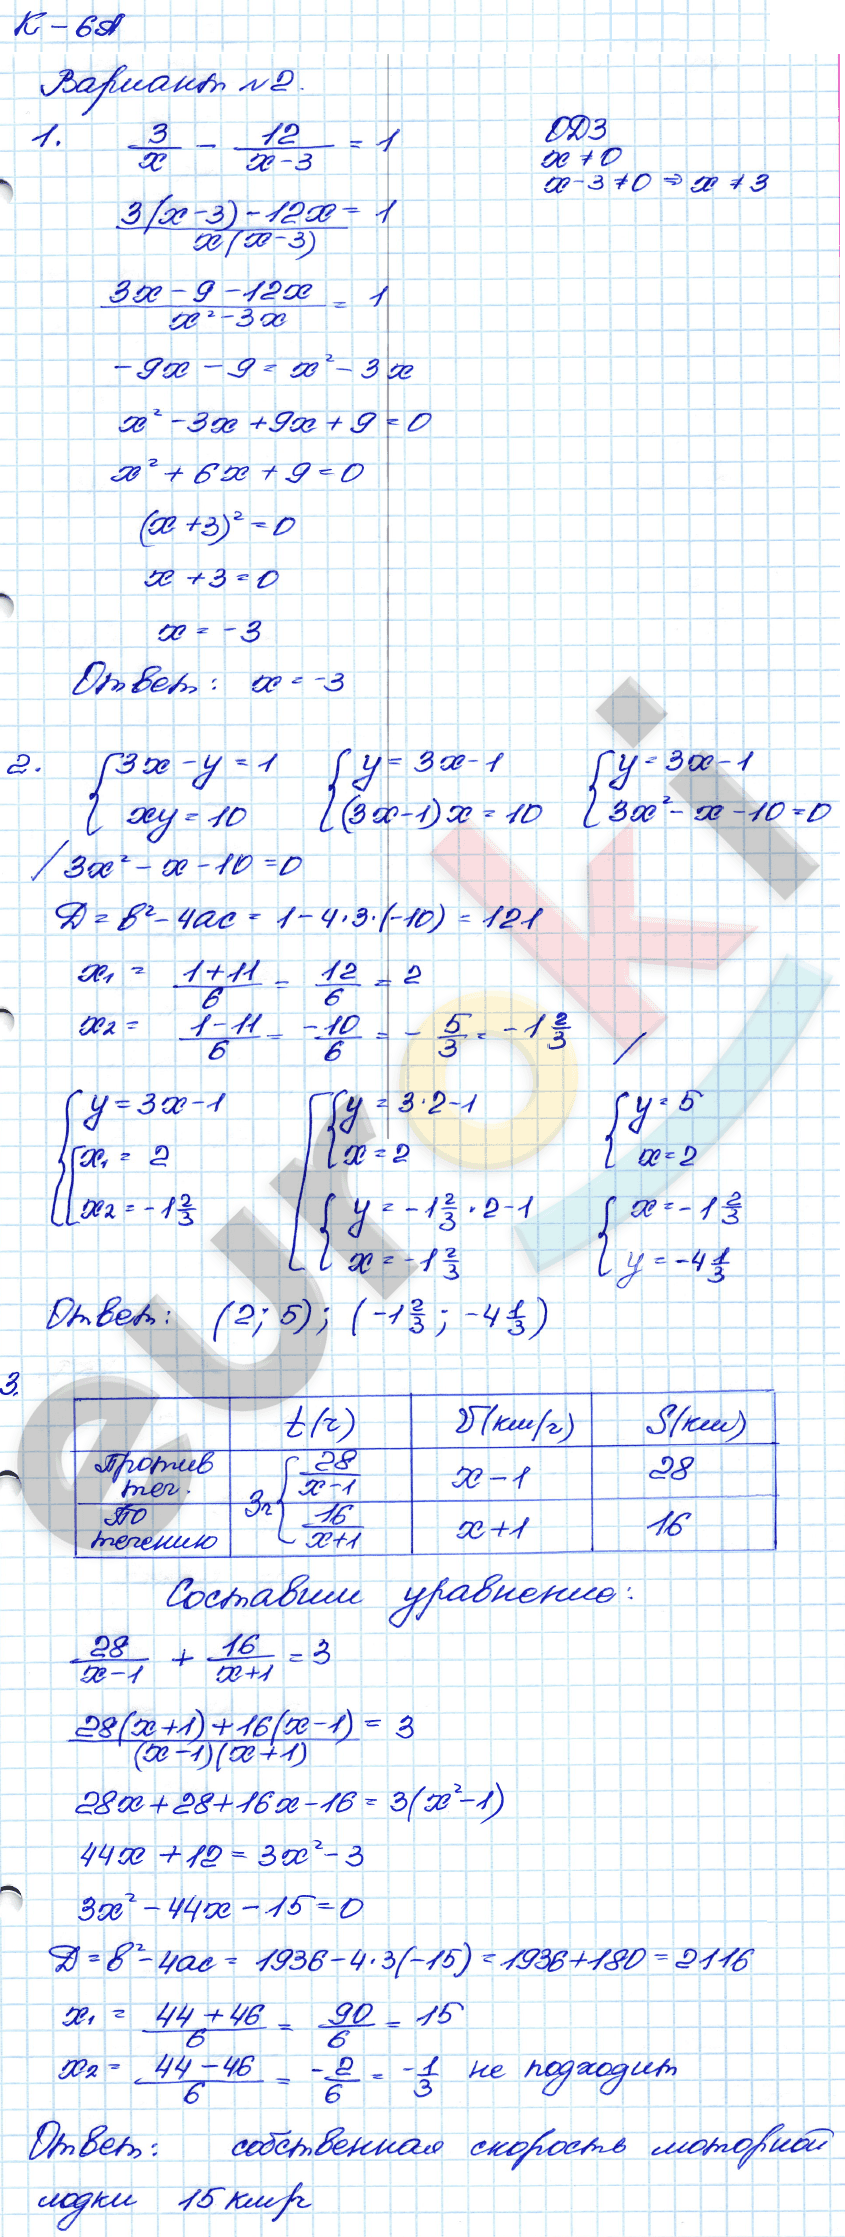 К – 6А
Вариант №2.
1. 3/x – 12/(x–3) = 1
ОДЗ
x ≠ 0
x–3 ≠ 0 ⇒ x ≠ 3
(3(x–3) – 12x)/(x(x–3)) = 1
(3x – 9 – 12x)/(x² – 3x) = 1
–9x – 9 = x² – 3x
x² – 3x + 9x + 9 = 0
x² + 6x + 9 = 0
(x + 3)² = 0
x + 3 = 0
x = –3
Ответ: x = –3
2. { 3x – y = 1 { y = 3x – 1 { y = 3x – 1
xy = 10 (3x–1)x = 10 3x² – x – 10 = 0
/ 3x² – x – 10 = 0
Д = b² – 4ac = 1 – 4·3·(–10) = 121
x₁ = (1+11)/6 = 12/6 = 2
x₂ = (1–11)/6 = –10/6 = – 5/3 = –1 2/3 /
{ y = 3x – 1 [ { y = 3·2–1 { y = 5
[ x₁ = 2 x = 2 x = 2
x₂ = –1 2/3 { y = –1 2/3 · 2–1 { x = –1 2/3
x = –1 2/3 y = –4 1/3
Ответ: (2; 5); (–1 2/3; –4 1/3)
3.
t(ч) V(км/ч) S(км)
Против теч. 3ч { 28/(x–1) x – 1 28
По течению 16/(x+1) x + 1 16
Составим уравнение:
28/(x–1) + 16/(x+1) = 3
(28(x+1) + 16(x–1))/((x–1)(x+1)) = 3
28x + 28 + 16x – 16 = 3(x² – 1)
44x + 12 = 3x² – 3
3x² – 44x – 15 = 0
Д = b² – 4ac = 1936 – 4·3(–15) = 1936 + 180 = 2116
x₁ = (44 + 46)/6 = 90/6 = 15
x₂ = (44 – 46)/6 = –2/6 = –1/3 не подходит
Ответ: собственная скорость моторной
лодки 15 км/ч
euroki